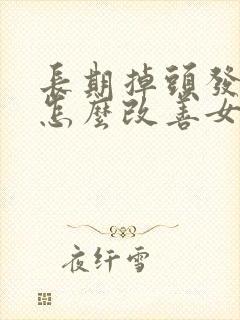 長期掉頭發
怎麼改善女
夜纤雪